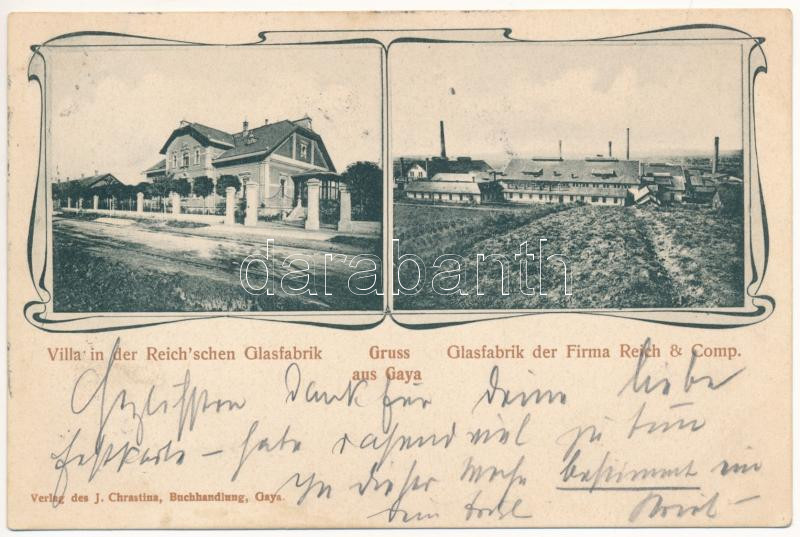 darabanth
Villa in der Reich'schen Glasfabrik
Gruss
aus Gaya
Glasfabrik der Firma Reich & Comp.
Herzlichsten Dank für deine liebe
Festkarte – habe rasend viel zu tun
In dieser Woche bestimmt ein
Verlag des J. Chrastina, Buchhandlung, Gaya.